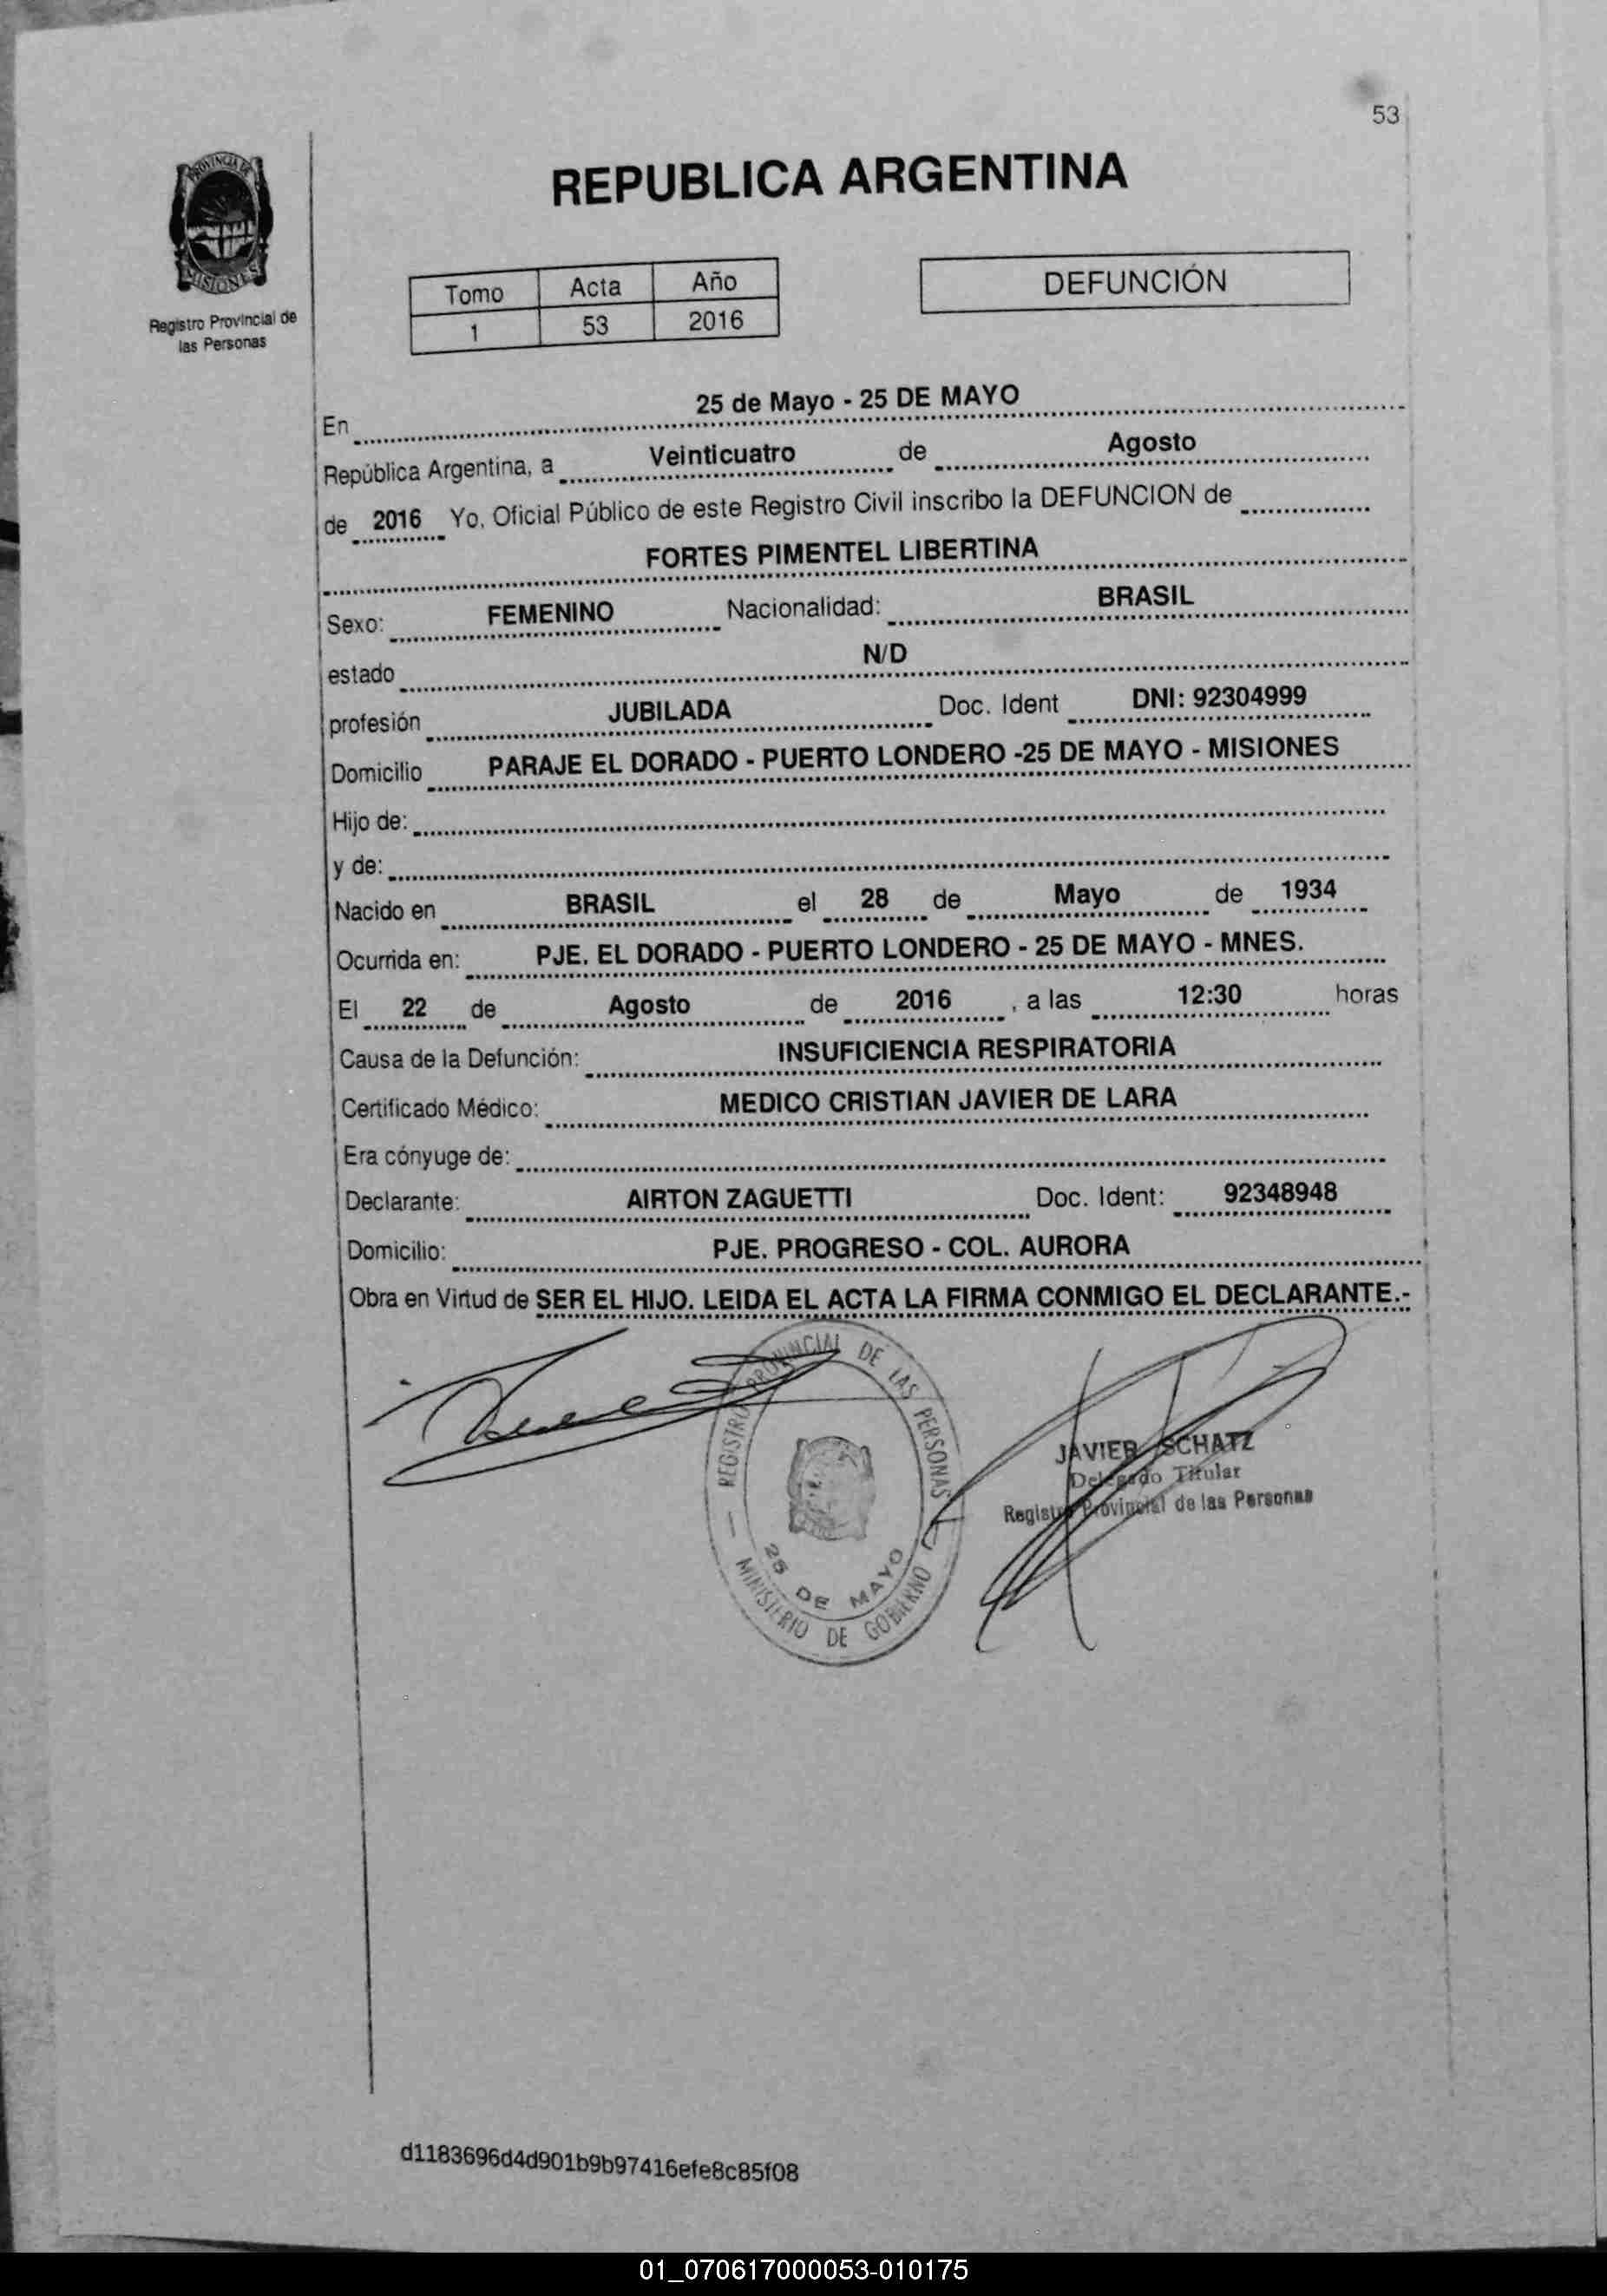 53
PROVINCIA DE
MISIONES
Registro Provincial de
las Personas
REPUBLICA ARGENTINA
Tomo Acta Año
1 53 2016
DEFUNCIÓN
En 25 de Mayo - 25 DE MAYO
República Argentina, a Veinticuatro de Agosto
de 2016 Yo, Oficial Público de este Registro Civil inscribo la DEFUNCION de
FORTES PIMENTEL LIBERTINA
Sexo: FEMENINO Nacionalidad: BRASIL
estado N/D
profesión JUBILADA Doc. Ident DNI: 92304999
Domicilio PARAJE EL DORADO - PUERTO LONDERO -25 DE MAYO - MISIONES
Hijo de:
y de:
Nacido en BRASIL el 28 de Mayo de 1934
Ocurrida en: PJE. EL DORADO - PUERTO LONDERO - 25 DE MAYO - MNES.
El 22 de Agosto de 2016 , a las 12:30 horas
Causa de la Defunción: INSUFICIENCIA RESPIRATORIA
Certificado Médico: MEDICO CRISTIAN JAVIER DE LARA
Era cónyuge de:
Declarante: AIRTON ZAGUETTI Doc. Ident: 92348948
Domicilio: PJE. PROGRESO - COL. AURORA
Obra en Virtud de SER EL HIJO. LEIDA EL ACTA LA FIRMA CONMIGO EL DECLARANTE.-
REGISTRO PROVINCIAL DE LAS PERSONAS
25 DE MAYO
MINISTERIO DE GOBIERNO
JAVIER SCHATZ
Delegado Titular
Registro Provincial de las Personas
d1183696d4d901b9b97416efe8c85f08
01_070617000053-010175